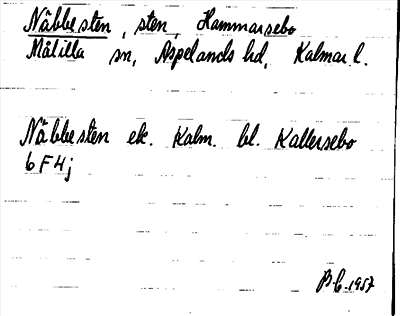 Näbbesten, sten, Hammarsebo
Målilla sn, Aspelands hd, Kalmar l.
Näbbesten ek. Kalm. bl. Kallersebo
6F4j
B.C. 1957